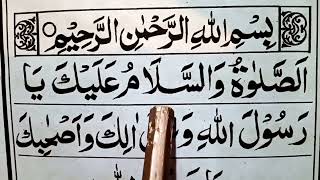 بِسْمِ اللهِ الرَّحْمٰنِ الرَّحِيْمِ
اَلصَّلٰوةُ وَالسَّلَامُ عَلَيْكَ يَا
رَسُوْلَ اللهِ وَ اٰلِكَ وَاَصْحٰبِكَ